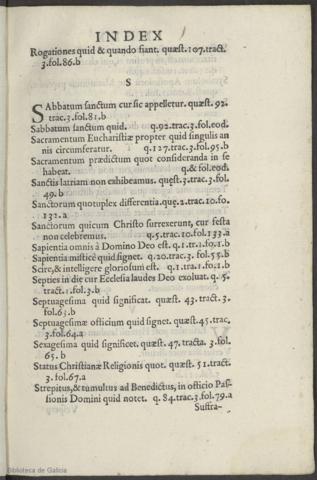 INDEX
Rogationes quid & quando fiant. quæst. 107. tract.
3. fol. 86. b
S
SAbbatum sanctum cur sic appelletur. quæst. 92.
trac. 3. fol. 81. b
Sabbatum sanctum quid. q. 92. trac. 3. fol. eod.
Sacramentum Eucharistiæ propter quid singulis an
nis circumferatur. q. 127. trac. 3. fol. 95. b
Sacramentum prædictum quot consideranda in se
habeat. q. & fol. eod.
Sanctis latriam non exhibeamus. quęst. 3. trac. 3. fol.
49. b
Sanctorum quotuplex differentia. quę. 2. trac. 10. fo.
132. a
Sanctorum quicum Christo surrexerunt, cur festa
non celebremus. q. 5. trac. 10. fol. 133. a
Sapientia omnis à Domino Deo est. q. 1. tr. 1. fo. 1. b
Sapientia misticè quid signet. q. 20. trac. 3. fol. 55. b
Scire, & intelligere gloriosum est. q. 1. tra. 1. fo. 1. b
Septies in die cur Ecclesia laudes Deo exoluat. q. 5.
tract. 1. fol. 3. b
Septuagesima quid significat. quæst. 43. tract. 3.
fol. 63. b
Septuagesimæ officium quid signet. quæst. 45. trac.
3. fol. 64. a
Sexagesima quid significet. quæst. 47. tracta. 3. fol.
65. b
Status Christianæ Religionis quot. quæst. 51. tract.
3. fol. 67. a
Strepitus, & tumultus ad Benedictus, in officio Pas
sionis Domini quid notet. q. 84. trac. 3. fol. 79. a
Suffra-
Biblioteca de Galicia